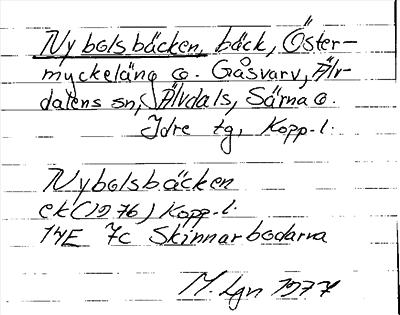 Nybolsbäcken, bäck, Öster-
myckeläng o. Gåsvarv, Älv-
dalens sn, Älvdals, Särna o.
Idre tg, Kopp.l.
Nybolsbäcken
ek (1976) Kopp.l.
14E 7c Skinnarbodarna
M. Lgn 1977